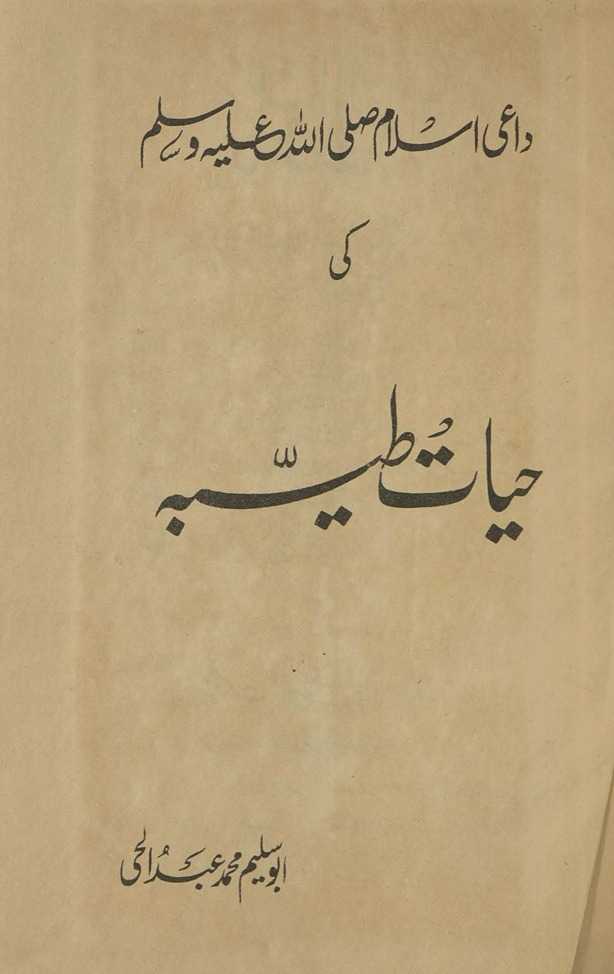 داعی اسلام صلی اللہ علیہ وسلم
کی
حیات طیّبہ
ابو سلیم محمد عبدُ الحی